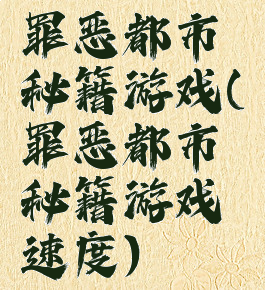 罪恶都市
秘籍游戏(
罪恶都市
秘籍游戏
速度)